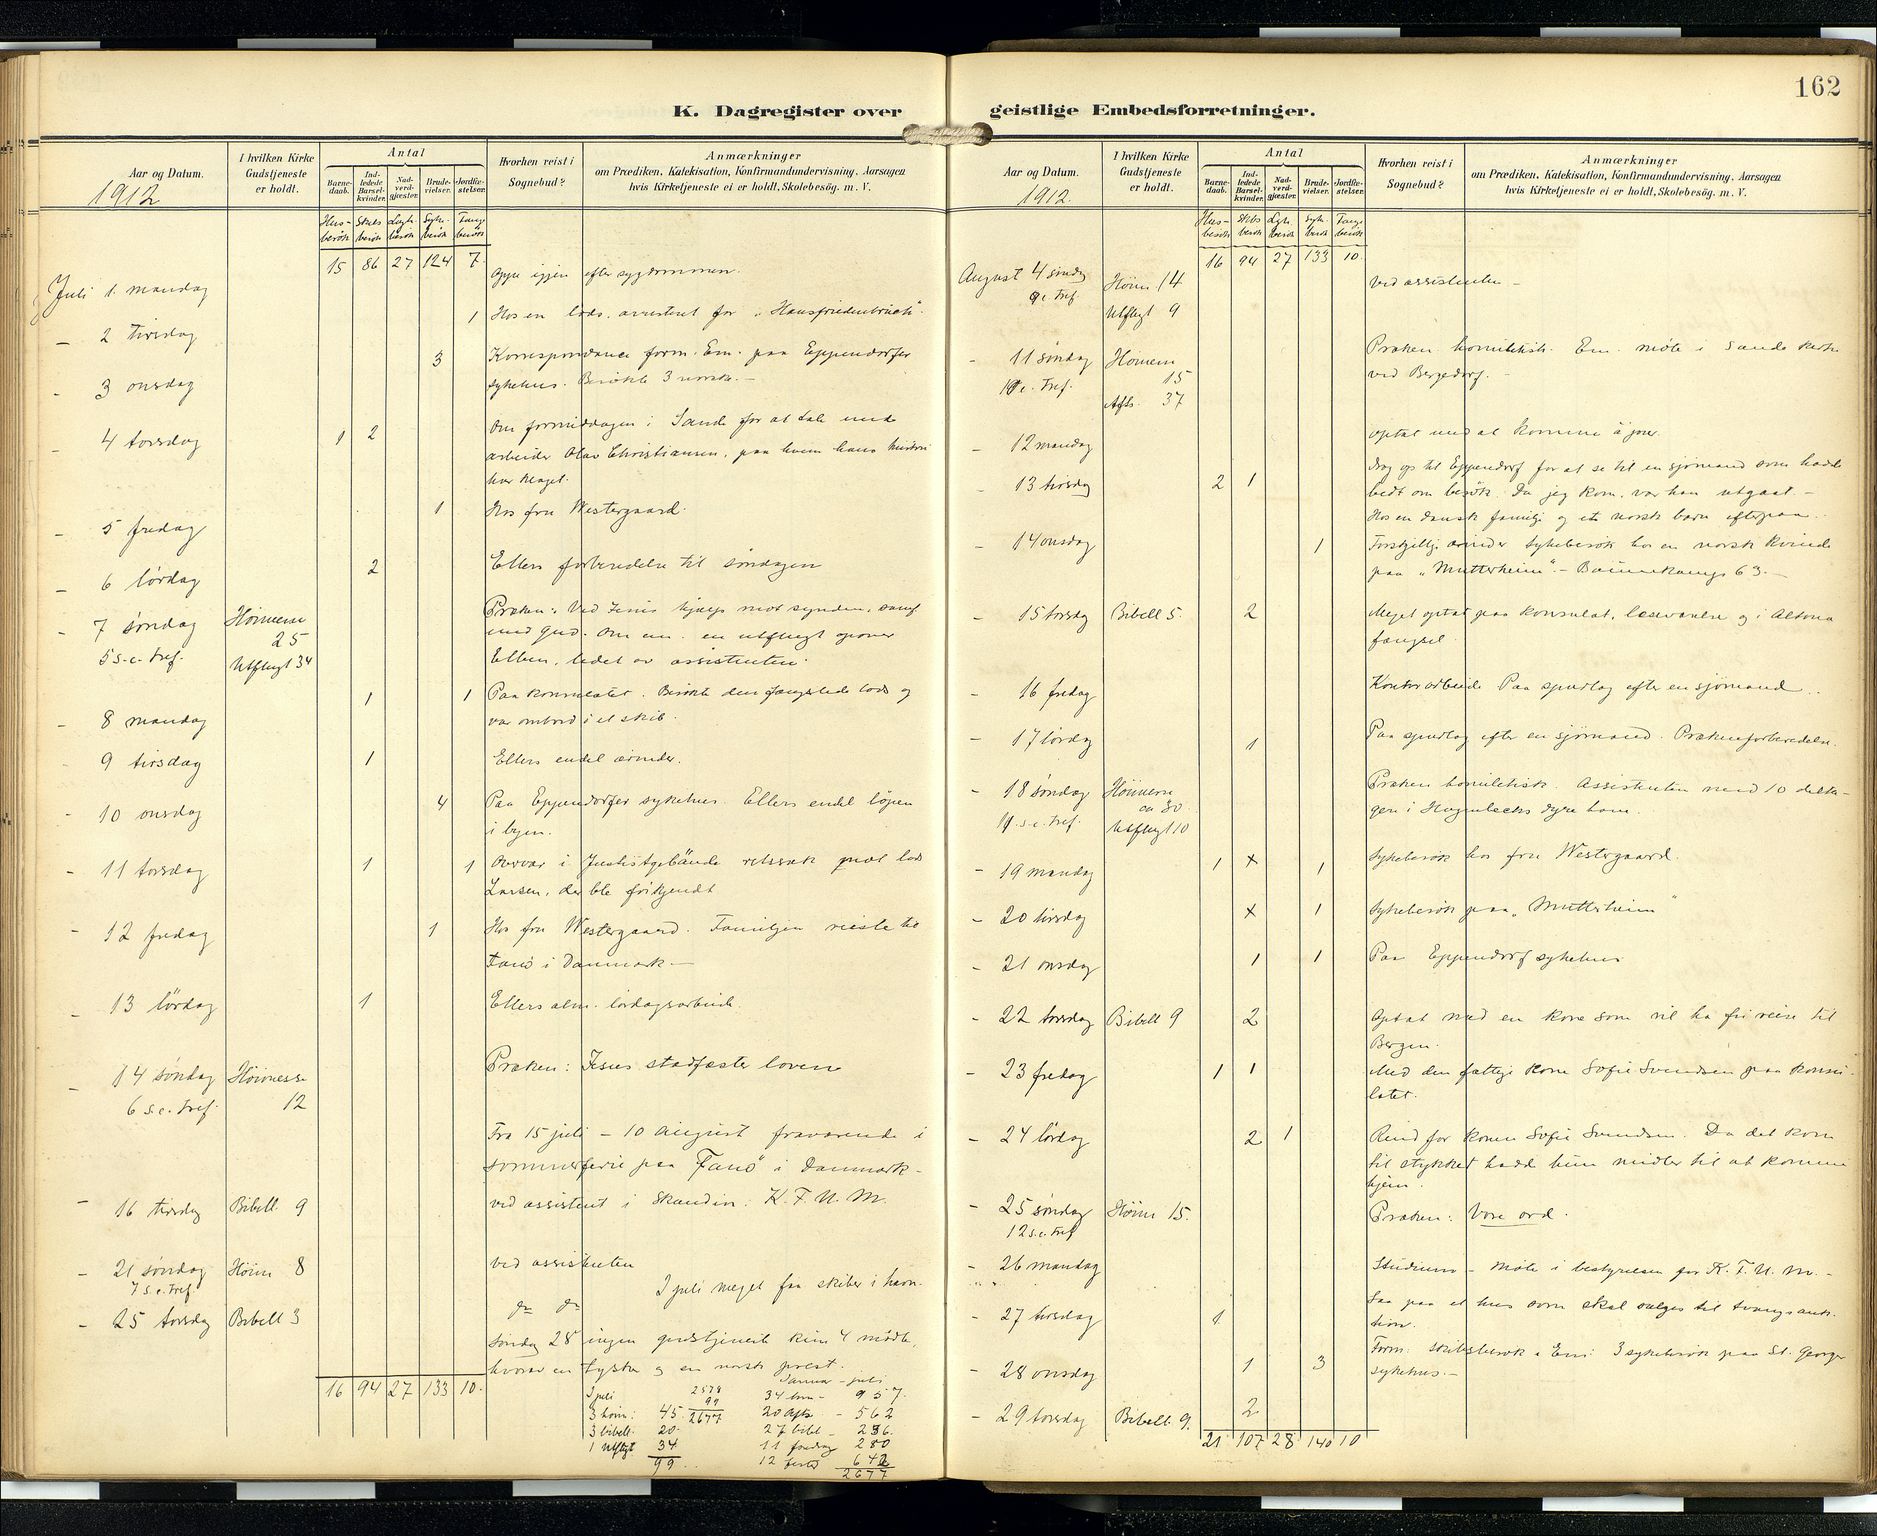 162
K. Dagregister over geistlige Embedsforretninger.
Aar og Datum.
1912
I hvilken Kirke
Gudstjeneste
er holdt.
Antal
Barne-
daab.
Ind-
ledede
Barsel-
kvinder.
Nad-
verd-
gjæster.
Brude-
vielser.
Jordfæ-
stelser.
Hvorhen reist i
Sognebud?
Anmærkninger
om Prædiken, Katekisation, Konfirmandundervisning, Aarsagen
hvis Kirketjeneste ei er holdt, Skolebesög. m. V.
Hus-
besök
Skibs
besök
Logh.
besök
Syke-
besök
Fange
besök
15 86 27 124 7
Juli 1. mandag
Oppe igjen efter sygdommen.
- 2 tirsdag
1 Hos en lods. arrestert for „Hausfriedenbruch".
- 3 onsdag
3 Korrespondance form. Em. paa Eppendorfer
sykehus. Besökte 3 norske.-
- 4 torsdag
1 2 Om formiddagen i Sande for at tale med
arbeider Olav Christiansen, paa hvem hans hustru
har klaget.
- 5 fredag
1 Hos fru Westergaard.
- 6 lördag
2 Ellers forberedelse til söndagen
- 7 söndag Höimesse 25
5 s. e. tref. Utflugt 34
Præken: Ved Jesus hjælp mot synden, samf
med Gud. Om em. en utflugt opover
Elben, ledet av assistenten.
- 8 mandag
1 1 Paa konsulatet. Besökte den fængslede lods og
var ombord i et skib.
9 tirsdag
1 Ellers endel ærinder.
- 10 onsdag
4 Paa Eppendorfer sykehus. Ellers endel löpen
i byen.
- 11 torsdag
1 1 Overvar i Justistgebäude retssak mot lods
Larsen, der ble frikjendt
- 12 fredag
1 Hos fru Westergaard. Familjen reiste til
Fanö i Danmark-
- 13 lördag
1 Ellers alm. lördagsarbeide.
- 14 söndag Höimesse
6 s. e. tref. 12
Præken: Jesus stadfæster loven
Fra 15 juli - 10 august fraværende i
sommerferie paa Fanö i Danmark-
- 16 tirsdag Bibell. 9
ved assistent i Skandin. K.F.U.M.
- 21 söndag Höim 8
7 s. e. tref.
ved assistenten
I juli meget faa skiber i havn.
- 25 torsdag Bibell 3
do do
Söndag 28 ingen gudstjeneste kun 4 mödte,
hvorav en tysker og en norsk prest.
16 94 27 133 10.
I juli
3 höim: 45.
3 bibell. 20.
1 utflugt 34
99
2578
99
2677
Januar - juli
34 höim - 957.
20 Afts. - 562
27 bibl. - 236.
11 fredag 280
12 fester 642
2677
Aar og Datum.
1912.
I hvilken Kirke
Gudstjeneste
er holdt.
Antal
Barne-
daab.
Ind-
ledede
Barsel-
kvinder.
Nad-
verd-
gjæster.
Brude-
vielser.
Jordfæ-
stelser.
Hvorhen reist i
Sognebud?
Anmærkninger
om Prædiken, Katekisation, Konfirmandundervisning, Aarsagen
hvis Kirketjeneste ei er holdt, Skolebesög. m. V.
Hus-
besök
Skibs
besök
Lgh.
besök
Syke-
besök
Fange
besök
16 94 27 133 10.
August 4 söndag Höim 14
9 e. tref. Utflugt 9
ved assistenten -
- 11 söndag Höimesse 15
10 e. tref. Afts. 37
Præken homiletisk. Em. möte i Sande kirke
ved Bergedorf. -
- 12 mandag
optat med at komme à jour.
- 13 tirsdag
2 1 Drog op til Eppendorf for at se til en sjömand som hadde
bedt om besök. Da jeg kom, var han utgaat.-
Hos en dansk familje og et norsk barn efterpaa.
- 14 onsdag
1 Forskjellige ærinder Sykebesök hos en norsk kvinde
paa „Mutterheim" - Baumkamp 63.-
15 torsdag Bibell 5.
2 Meget optat paa konsulat, læseværelse og i Altona
fængsel
- 16 fredag
Kontorarbeide Paa spurlag efter en sjömand.
- 17 lördag
1 Paa spurlag efter en sjömand. Prækenforberedelse.
- 18 söndag Höimesse ca 30
11 s. e. tref. Utflugt 10
Præken homiletisk. Assistenten med 10 delta-
gere i Hagenbecks dyrehave.
- 19 mandag
1 x 1 Sykebesök hos fru Westergaard.
- 20 tirsdag
x 1 Sykebesök paa „Mutterheim"
- 21 onsdag
1 1 Paa Eppendorf sykehus
- 22 torsdag Bibell 9
2 Optat med en kone som vil ha fri reise til
Bergen.
- 23 fredag
1 1 Med den fattige kone Sofie Svendsen paa konsu-
latet.
- 24 lördag
2 1 Rend for konen Sofie Svendsen. Da det kom
til stykket hadde hun midler til at komme
hjem.
- 25 söndag Höim 15.
12 s. e. tref
Præken: Vore ord.
- 26 mandag
Studium - möte i bestyrelsen for K.F.U.M.-
- 27 tirsdag
1 Saa paa et hus som skal sælges til tvangsauk-
tion.
- 28 onsdag
1 3 Form: skibsbesök. Em: 3 sykebesök paa St. Georger
sykehus.-
- 29 torsdag Bibell. 9.
2
21 107 28 140 10